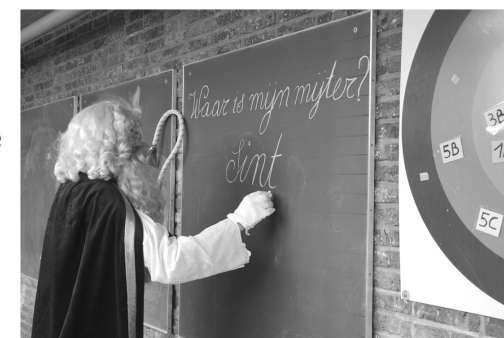 Waar is mijn mijter?
Sint
3B
5B
5C